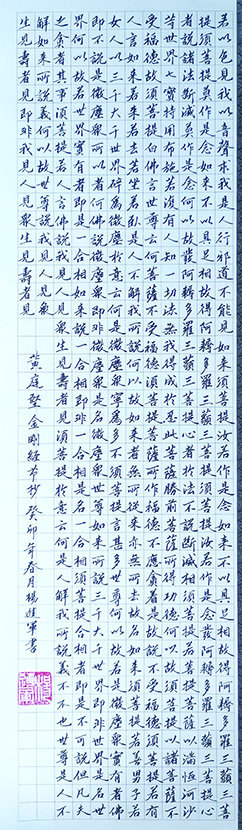 若以色見我以音聲求我是人行邪道不能見如來須菩提汝若作是念如來不以具足相故得阿耨多羅三藐三菩
提須菩提莫作是念如來不以具足相故得阿耨多羅三藐三菩提須菩提汝若作是念發阿耨多羅三藐三菩提心
者說諸法斷滅莫作是念何以故發阿耨多羅三藐三菩提心者於法不說斷滅相須菩提若菩薩以滿恒河沙
等世界七寶持用布施若復有人知一切法無我得成於忍此菩薩勝前菩薩所得功德何以故須菩提以諸菩薩不
受福德故須菩提白佛言世尊云何菩薩不受福德須菩提菩薩所作福德不應貪著是故說不受福德須菩提若有
人言如來若來若去若坐若臥是人不解我所說義何以故如來者無所從來亦無所去故名如來須菩提若善男子善
女人以三千大千世界碎為微塵於意云何是微塵眾寧為多不須菩提言甚多世尊何以故若是微塵眾實有者佛
即不說是微塵眾所以者何佛說微塵眾即非微塵眾是名微塵眾世尊如來所說三千大千世界即非世界是名世
界何以故若世界實有者即是一合相如來說一合相即非一合相是名一合相須菩提一合相者即是不可說但凡夫
之人貪著其事須菩提若人言佛說我見人見眾生見壽者見須菩提於意云何是人解我所說義不不也世尊是人不
解如來所說義何以故世尊說我見人見眾
生見壽者見即非我見人見眾生見壽者見
黃庭堅金剛經節抄 癸卯年春月楊進軍書